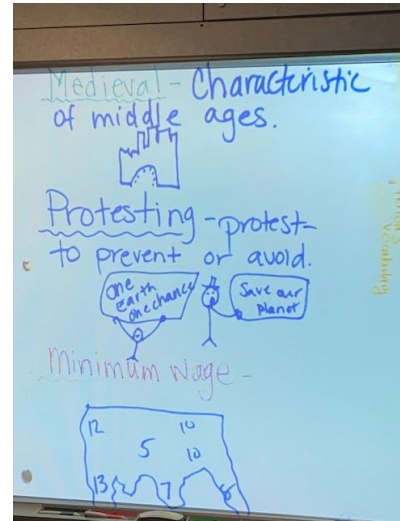 Medieval - Characteristic
of middle ages.
Protesting - protest-
to prevent or avoid.
One
earth
one chance
Save our
planet
Minimum wage -
12
10
5
10
13
7
vocabulary